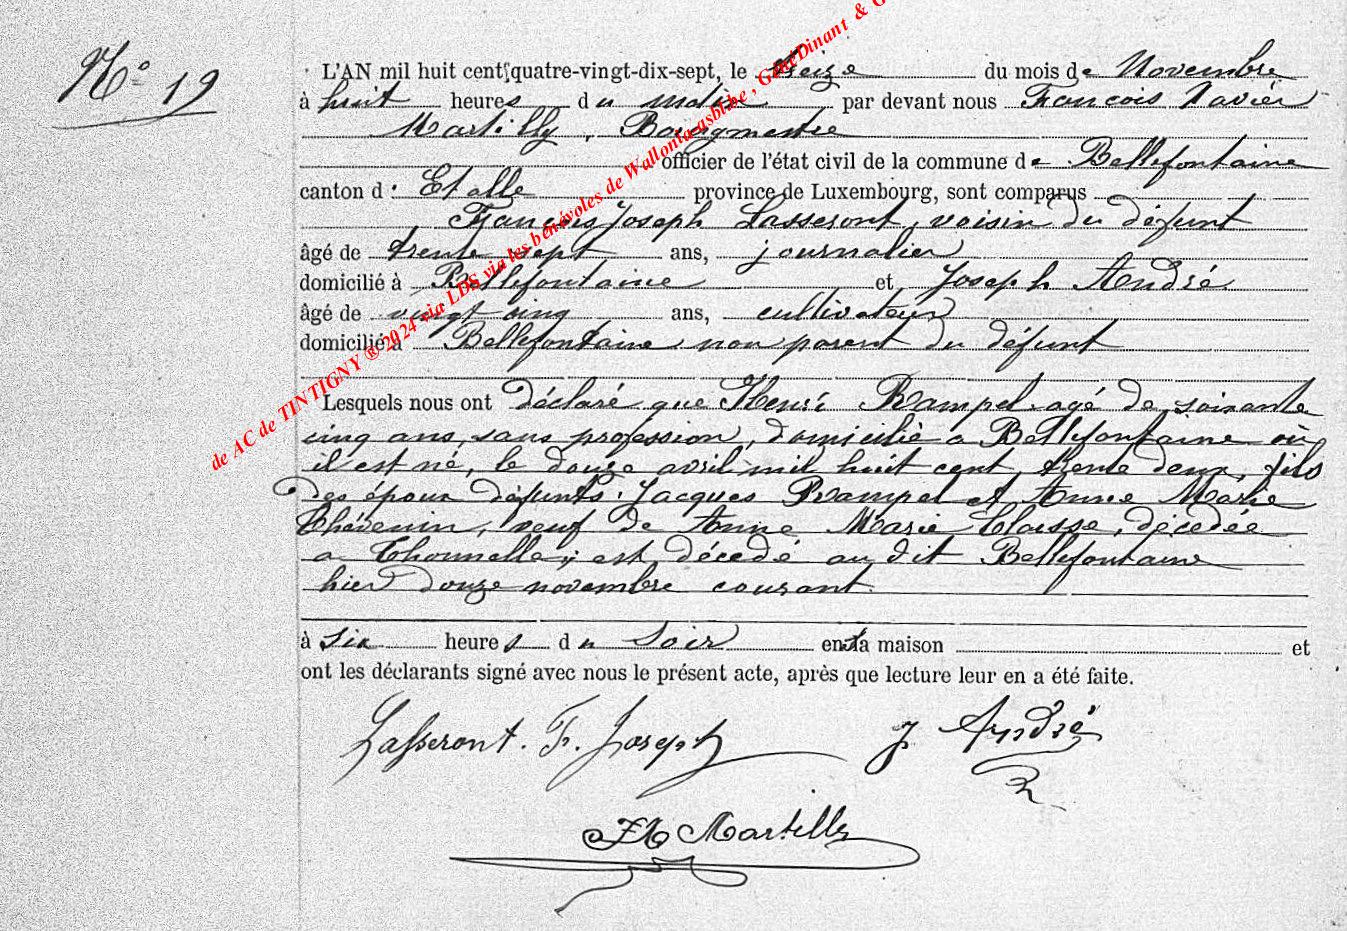 N° 19
L'AN mil huit cent quatre-vingt-dix-sept, le treize du mois de Novembre
à huit heures du matin par devant nous François Xavier
Martilly, Bourgmestre
officier de l'état civil de la commune de Bellefontaine
canton d'Etalle province de Luxembourg, sont comparus
François Joseph Lasseront, voisin du défunt
âgé de trente sept ans, journalier
domicilié à Bellefontaine et Joseph André
âgé de vingt cinq ans, cultivateur
domicilié à Bellefontaine non parent du défunt
Lesquels nous ont déclaré que Henri Rampel agé de soixante
cinq ans, sans profession, domicilié a Bellefontaine où
il est né, le douze avril mil huit cent trente deux, fils
des époux défunts Jacques Rampel et Anne Marie
Thévenin, veuf de Anne Marie Claisse, décédée
a Thonnelle, est décédé au dit Bellefontaine
hier douze novembre courant
à six heures du soir en sa maison et
ont les déclarants signé avec nous le présent acte, après que lecture leur en a été faite.
Lasseront. F. Joseph J André
FX Martilly
de AC de TINTIGNY ® 2024 via LDS via les bénévoles de Wallonia asbl.be, GeneDinant & G